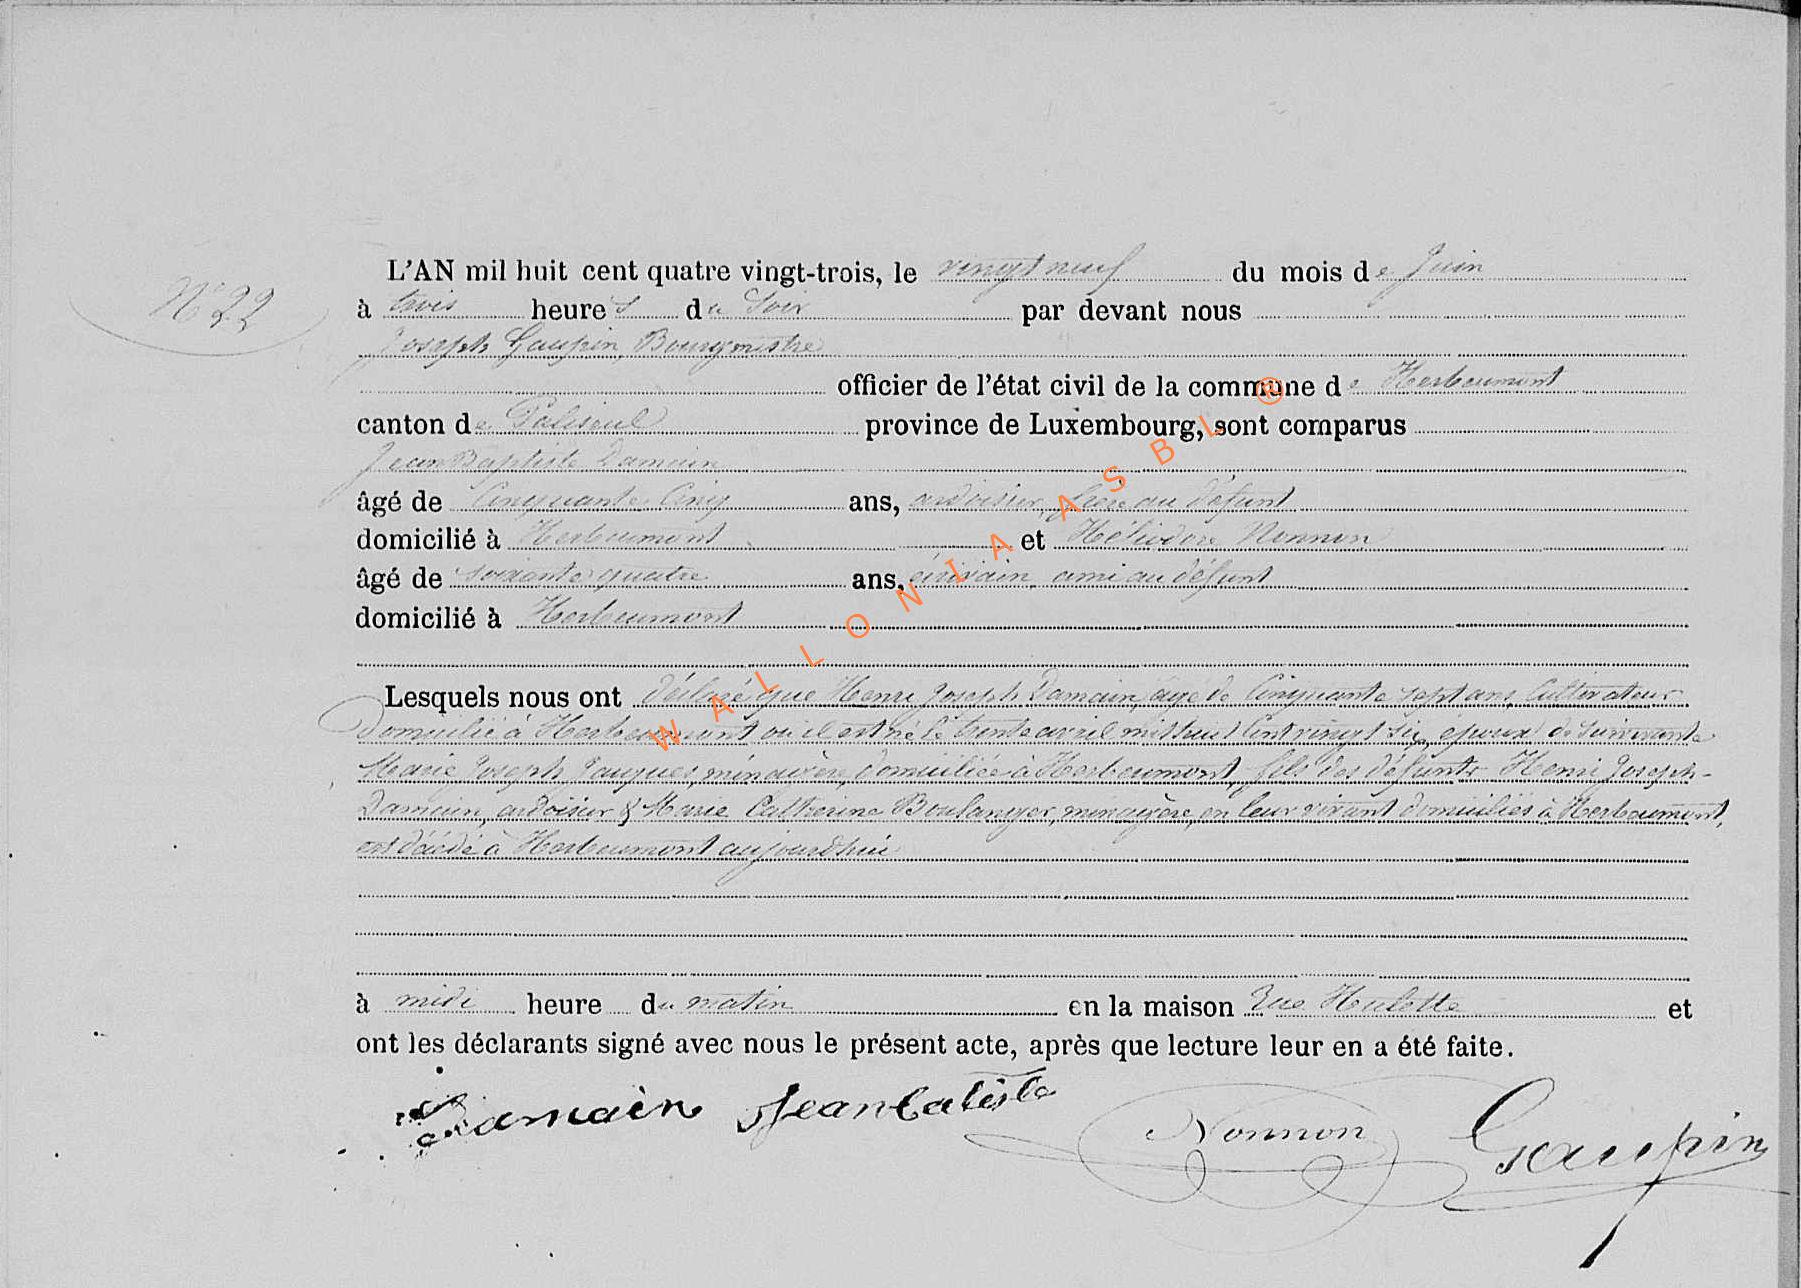 N° 22
L'AN mil huit cent quatre vingt-trois, le vingt neuf du mois de Juin
à trois heures du Soir par devant nous
Joseph Gaupin, Bourgmestre
officier de l'état civil de la commune de Herbeumont
canton de Paliseul province de Luxembourg, sont comparus
Jean Baptiste Damain
âgé de Cinquante Cinq ans, ardoisier, frère au défunt
domicilié à Herbeumont et Héliodore Nonnon
âgé de soixante quatre ans, écrivain, ami au défunt
domicilié à Herbeumont
Lesquels nous ont déclaré que Henri Joseph Damain, âgé de Cinquante sept ans, Cultivateur
Domicilié à Herbeumont où il est né le trente avril mil huit Cent vingt six, époux de survivante
Marie Joseph Jacques, ménagère, domiciliée à Herbeumont, fils des défunts Henri Joseph-
Damain, ardoisier & Marie Catherine Boulanger, ménagère, en leur vivant domiciliés à Herbeumont,
est décédé à Herbeumont aujourd'hui
à midi heure du matin en la maison Rue Hulette et
ont les déclarants signé avec nous le présent acte, après que lecture leur en a été faite.
Damain Jean batiste Nonnon Gaupin
WALLONIA ASBL ®